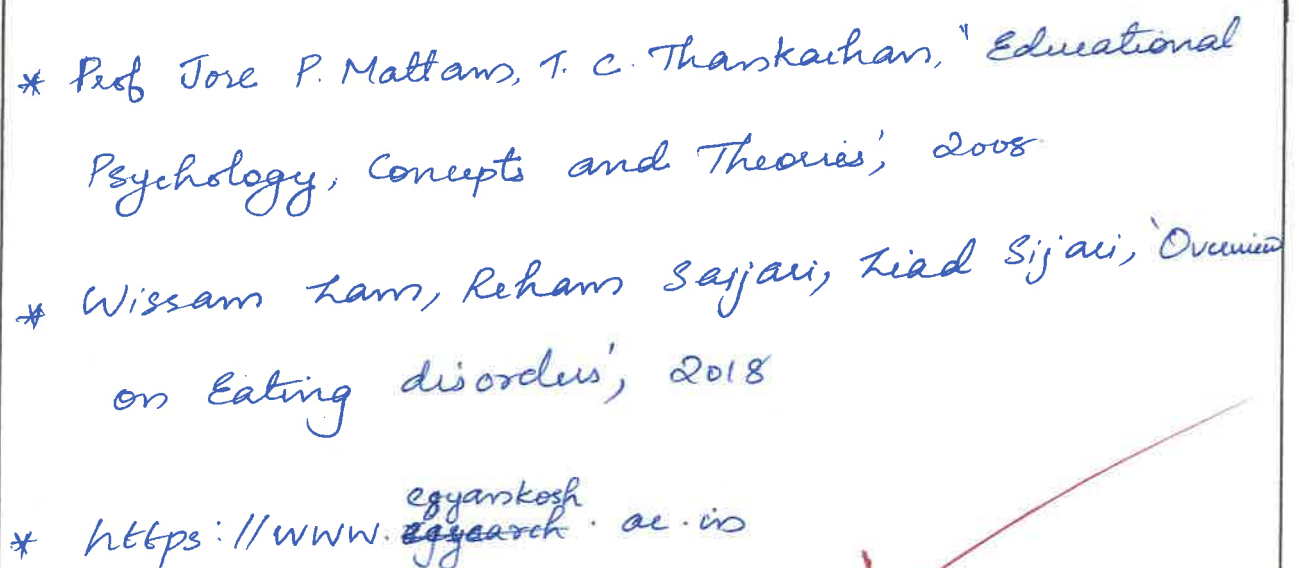 * Prof Jose P. Mattam, T. C. Thankachan, " Educational
Psychology, Concepts and Theories', 2008
* Wissam Zam, Reham Saijari, Ziad Sijari, 'Overview
on Eating disorders', 2018
egyankosh
* https://www. . ac . in